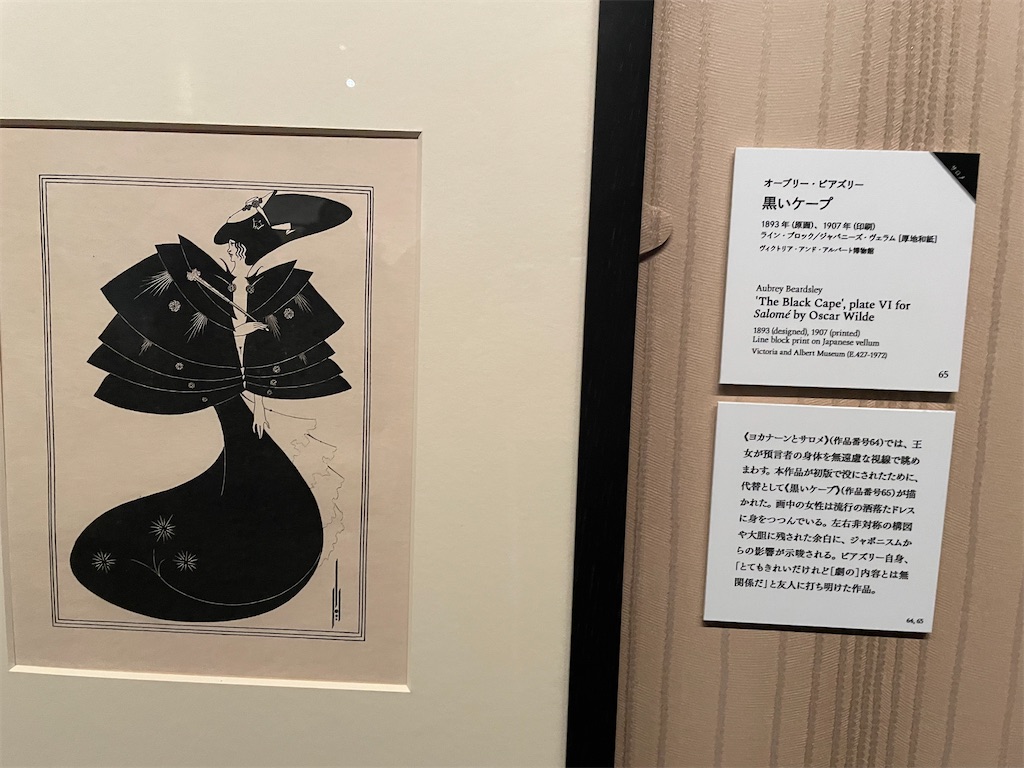 サロメ
オーブリー・ビアズリー
黒いケープ
1893年(原画)、1907年(印刷)
ライン・ブロック/ジャパニーズ・ヴェラム[厚地和紙]
ヴィクトリア・アンド・アルバート博物館
Aubrey Beardsley
'The Black Cape', plate VI for
Salomé by Oscar Wilde
1893 (designed), 1907 (printed)
Line block print on Japanese vellum
Victoria and Albert Museum (E.427-1972)
65
《ヨカナーンとサロメ》(作品番号64)では、王
女が預言者の身体を無遠慮な視線で眺め
まわす。本作品が初版で没にされたために、
代替として《黒いケープ》(作品番号65)が描
かれた。画中の女性は流行の洒落たドレス
に身をつつんでいる。左右非対称の構図
や大胆に残された余白に、ジャポニスムか
らの影響が示唆される。ビアズリー自身、
「とてもきれいだけれど[劇の]内容とは無
関係だ」と友人に打ち明けた作品。
64, 65